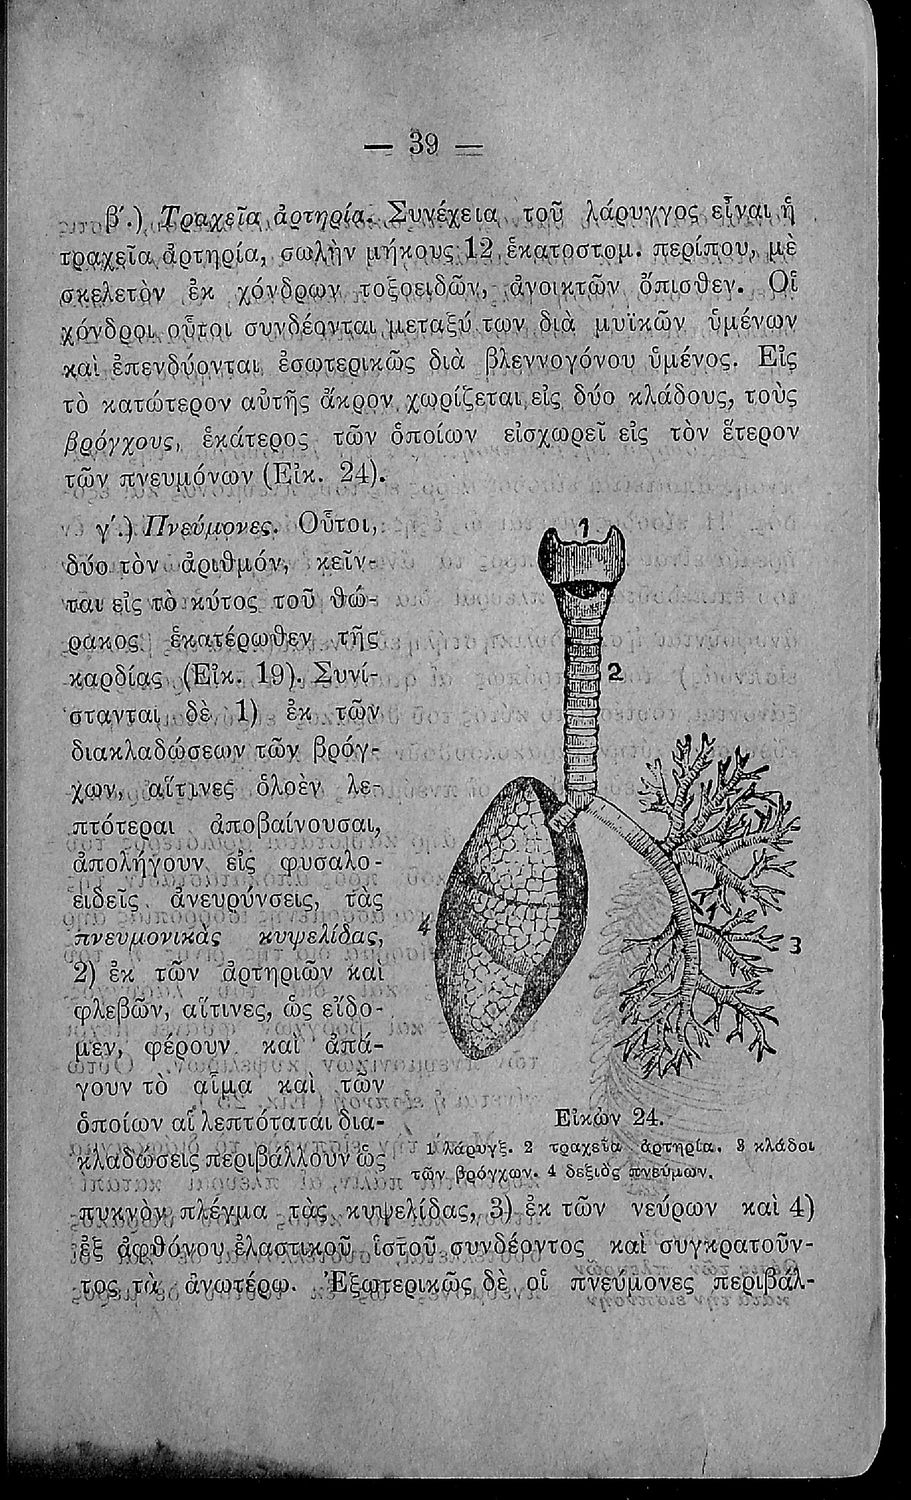 — 39 —
β΄.) Τραχεῖα ἀρτηρία. Συνέχεια τοῦ λάρυγγος εἶναι ἡ
τραχεῖα ἀρτηρία, σωλὴν μήκους 12 ἑκατοστομ. περίπου, μὲ
σκελετὸν ἐκ χόνδρων τοξοειδῶν, ἀνοικτῶν ὄπισθεν. Οἱ
χόνδροι οὗτοι συνδέονται μεταξύ των διὰ μυϊκῶν ὑμένων
καὶ ἐπενδύονται ἐσωτερικῶς διὰ βλεννογόνου ὑμένος. Εἰς
τὸ κατώτερον αὐτῆς ἄκρον χωρίζεται εἰς δύο κλάδους, τοὺς
βρόγχους, ἑκάτερος τῶν ὁποίων εἰσχωρεῖ εἰς τὸν ἕτερον
τῶν πνευμόνων (Εἰκ. 24).
γ΄.) Πνεύμονες. Οὗτοι,
δύο τὸν ἀριθμόν, κεῖν-
ται εἰς τὸ κύτος τοῦ θώ-
ρακος ἑκατέρωθεν τῆς
καρδίας (Εἰκ. 19). Συνί-
στανται δὲ 1) ἐκ τῶν
διακλαδώσεων τῶν βρόγ-
χων, αἵτινες ὁλοὲν λε-
πτότεραι ἀποβαίνουσαι,
ἀπολήγουν εἰς φυσαλο-
ειδεῖς ἀνευρύνσεις, τὰς
πνευμονικὰς κυψελίδας,
2) ἐκ τῶν ἀρτηριῶν καὶ
φλεβῶν, αἵτινες, ὡς εἴδο-
μεν, φέρουν καὶ ἀπά-
γουν τὸ αἷμα καὶ τῶν
ὁποίων αἱ λεπτόταται δια-
κλαδώσεις περιβάλλουν ὡς
πυκνὸν πλέγμα τὰς κυψελίδας, 3) ἐκ τῶν νεύρων καὶ 4)
ἐξ ἀφθόνου ἐλαστικοῦ ἱστοῦ συνδέοντος καὶ συγκρατοῦν-
τος τὰ ἀνωτέρω. Ἐξωτερικῶς δὲ οἱ πνεύμονες περιβάλ-
1
2
3
4
Εἰκὼν 24.
1 λάρυγξ. 2 τραχεῖα ἀρτηρία. 3 κλάδοι
τῶν βρόγχων. 4 δεξιὸς πνεύμων.